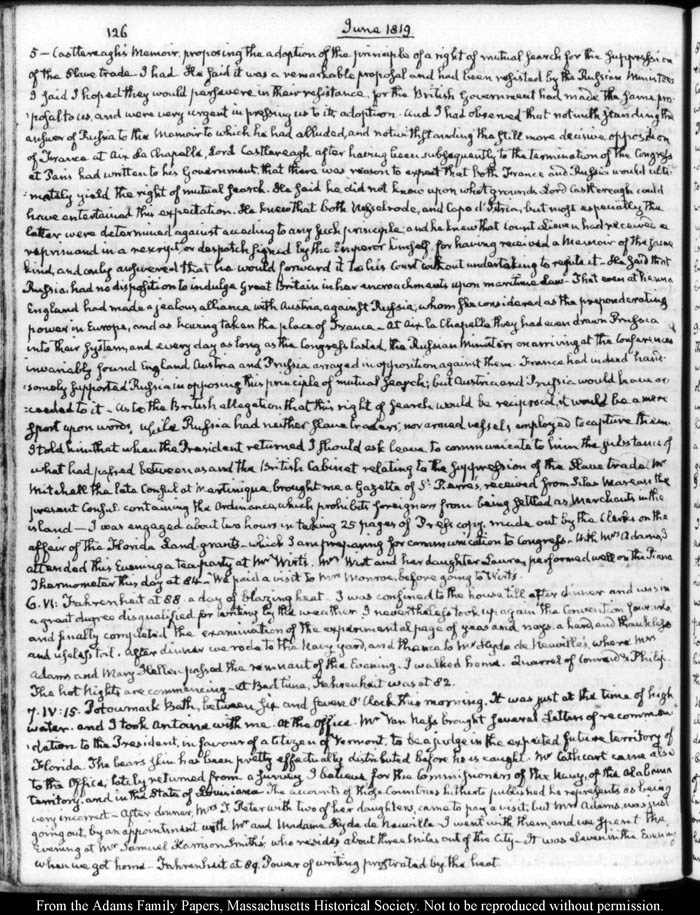 126 June 1819.
5 — Castlereagh's Memoir, proposing the adoption of the principle of a right of mutual search for the suppression
of the Slave trade. I had. He said it was a remarkable proposal and had been resisted by the Russian Ministers
I said I hoped they would persevere in their resistance, for the British Government had made the same pro-
-posal to us, and were very urgent in pressing us to its adoption. And I had observed that notwithstanding the
answer of Russia to the Memoir to which he had alluded, and notwithstanding the still more decisive opposition
of France at Aix la Chapelle, Lord Castlereagh after having been subsequently to the termination of the Congress
at Paris had written to his Government, that there was reason to expect that both France and Russia would ulti-
mately yield the right of mutual search. He said he did not know upon what grounds Lord Castlereagh could
have entertained this expectation. He knew that both Nesselrode, and Capo d'Istria, but most especially the
latter were determined against acceding to any such principle; and he knew that Count Lieven had received a
reprimand in a rescript, or despatch signed by the Emperor himself, for having received a Memoir of the same
kind, and only answered that he would forward it to his Court without undertaking to refute it. He said that
Russia had no disposition to indulge Great Britain in her encroachments upon maritime Law. That even at Vienna
England had made a jealous alliance with Austria against Russia, whom she considered as the preponderating
power in Europe, and as having taken the place of France. At Aix la Chapelle they had even drawn Prussia
into their System, and every day as long as the Congress lasted, the Russian Ministers on arriving at the conferences
invariably found England, Austria and Prussia arrayed in opposition against them. France had indeed hand-
somely supported Russia in opposing this principle of mutual search; but Austria and Prussia would have ac-
-ceeded to it. As to the British allegation that this right of search would be reciprocal, it would be a mere
sport upon words, while Russia had neither slave traders, nor armed vessels employed to capture them.
I told him that when the President returned I should ask leave to communicate to him the substance of
what had passed between us and the British Cabinet relating to the suppression of the Slave trade. Mr
Mitchell the late Consul at Martinique, brought me a Gazette of St. Pierre, received from the
present Consul, containing the Ordinance, which prohibits foreigners from being settled as Merchants in the
island — I was engaged about two hours in taking 25 pages of Press copy, made out by the Clerks on the
affair of the Florida Land grants — which I am preparing for communication to Congress. With Mrs Adams, I
attended this Evening a tea party at Mr Wirt's. Mrs Wirt and her daughter Laura, performed well on the Piano
Thermometer this day at 84 — We paid a visit to Mrs Monroe, before going to Wirt's.
6. VI: Fahrenheit at 88. a day of blazing heat. I was confined to the house till after dinner and was in
a great degree disqualified for writing by the weather. I nevertheless took up again the Convention Journals,
and finally completed the examination of the experimental page of yeas and nays. a hard, and thankless
and useless toil. After dinner we rode to the Navy yard, and thence to Mr Hyde de Neuville's, where Mrs
Adams and Mary Hellen passed the remnant of the Evening. I walked home. Quarrel of Conrad & Philip.
The hot Nights are commencing — At Bed time, Fahrenheit was at 82.
7. IV: 15. Potowmack Bath, between six and seven O'Clock this morning. It was just at the time of high
water. and I took Antoine with me. At the Office. Mr Van Ness brought several Letters of recommen-
-dation to the President, in favour of a Citizen of Vermont, to be a judge in the expected future territory of
Florida. The bears skin has been pretty effectually distributed before he is caught. Mr Cathcart came also
to the Office, lately returned from a survey I believe for the Commissioners of the Navy, of the Alabama
Territory, and in the State of Louisiana. The accounts of those Countries hitherto published he represents as being
very incorrect — After dinner, Mrs T. Peter with two of her daughters, came to pay a visit; but Mrs Adams, was just
going out, by an appointment with Mr and Madame Hyde de Neuville. I went with them, and we spent the
evening at Mr Samuel Harrison Smith's, who resides about three Miles out of the City. It was eleven in the Evening
when we got home — Fahrenheit at 89. Power of writing prostrated by the heat
From the Adams Family Papers, Massachusetts Historical Society. Not to be reproduced without permission.